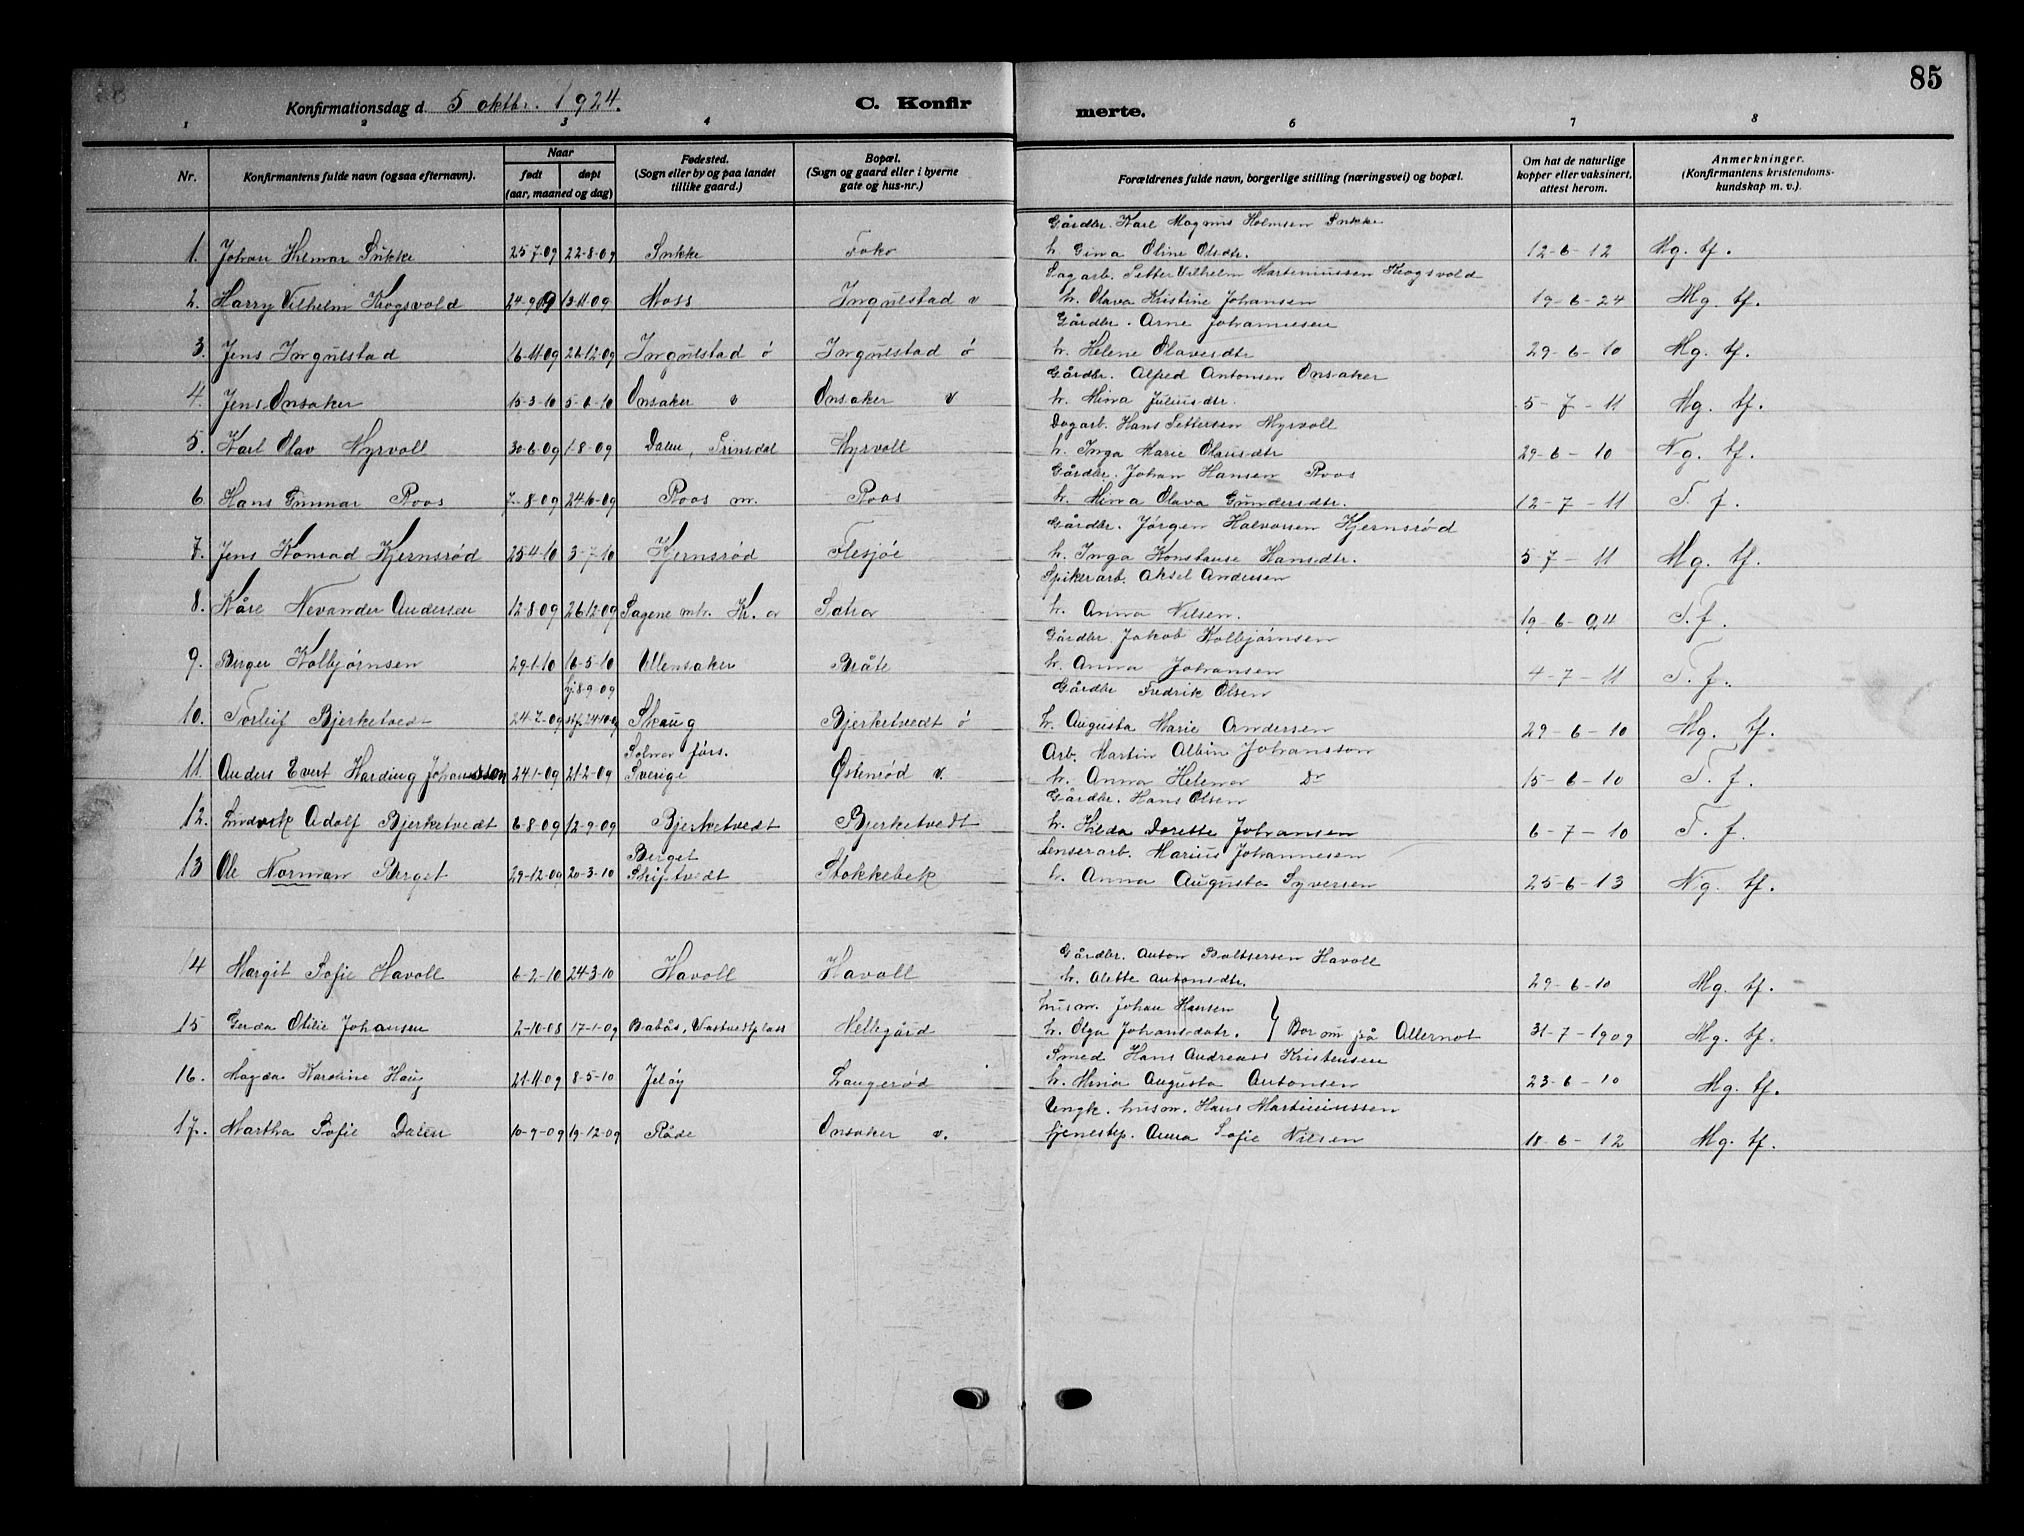 85
Konfirmationsdag d. 5 oktbr. 1924. C. Konfirmerte.
1 2 3 4 6 7 8
Nr. Konfirmantens fulde navn (ogsaa efternavn). Naar født døpt (aar, maaned og dag) Fødested. (Sogn eller by og paa landet tillike gaard.) Bopæl. (Sogn og gaard eller i byerne gate og hus-nr.) Forældrenes fulde navn, borgerlige stilling (næringsvei) og bopæl. Om hat de naturlige kopper eller vaksinert, attest herom. Anmerkninger. (Konfirmantens kristendomskundskap m. v.).
Gårdbr. Karl Magnus Holmsen Sukke
1. Johan Hilmar Sukke 25-7-09 22-8-09 Sukke Foko h. Gina Oline Olsdtr. 12-6-12 Mg. tf.
Sagarb. Petter Vilhelm Marteniussen Krogsvold
2. Harry Vilhelm Krogsvold 24-9-09 13-11-09 Moss Ingulstad v h. Olava Kristine Johansen 19-6-24 Mg. tf.
Gårdbr. Arne Johannesen
3. Jens Ingulstad 16-11-09 26-12-09 Ingulstad ø Ingulstad ø h. Helene Olavesdtr 29-6-10 Mg. tf.
Gårdbr. Alfred Antonsen Onsaker
4. Jens Onsaker 15-3-10 5-6-10 Onsaker v Onsaker v h. Mina Juliusdtr. 5-7-11 Mg. tf.
Dagarb. Hans Pettersen Myrvoll
5. Karl Olav Myrvoll 30-6-09 1-8-09 Dalen, Prinsdal Myrvoll h. Inga Marie Olausdtr 29-6-10 Ng. tf.
Gårdbr. Johan Hansen Roos
6. Hans Gunnar Roos 7-8-09 24-6-09 Roos m. Roos h. Mina Olava Gundersdtr. 12-7-11 T. f.
Gårdbr. Jørgen Halvorsen Kjernsrød
7. Jens Konrad Kjernsrød 25-4-10 3-7-10 Kjernsrød Flesjøe h. Inga Konstanse Hansdtr. 5-7-11 Mg. tf.
Spikerarb. Aksel Andersen
8. Kåre Nevander Andersen 12-8-09 26-12-09 Sagene mh. Kr. a h. Anna Nilsen. 19-6-24 T. f.
Gårdbr Jakob Kolbjørnsen
9. Birger Kolbjørnsen 29-1-10 16-5-10 Ullensaker Bråte h. Anna Johansen 4-7-11 T. f.
hj. 8-9-09 Gårdbr Fredrik Olsen
10. Torleif Bjerketvedt 24-7-09 stf. 24-10-09 Skaug Bjerketvedt ø h. Augusta Marie Andersen 29-6-10 Mg. tf.
førs. Arb. Martin Albin Johansson
11. Anders Evert Harding Johansson 24-1-09 21-2-09 Sverige Østenrød v. h. Anna Helena Dr 15-6-10 T. f.
Gårdbr. Hans Olsen
12. Ludvik Adolf Bjerketvedt 6-8-09 12-9-09 Bjerketvedt Bjerketvedt h. Hilda Dorette Johansen 6-7-10 T. f.
Berget Lenserarb. Marius Johannesen
13 Ole Norman Berget 29-12-09 20-3-10 Skiptvedt Stokkebek h. Anna Augusta Syversen 25-6-13 Ng. tf.
Gårdbr. Anton Baltsersen Havoll
14 Margit Sofie Havoll 6-2-10 24-3-10 Havoll Havoll h. Olette Antonsdtr. 29-6-10 Mg. tf.
husm. Johan Hansen
15 Gerda Otilie Johansen 2-10-08 17-1-09 Babås, Vastvedtplass Nellegård h. Olga Johansdatr. } Bor nu på Allernot 31-7-1909 Mg. tf.
Smed Hans Andreas Kristensen
16. Magda Karoline Haug 21-11-09 8-5-10 Jeløy Laugerød h. Mina Augusta Antonsen 23-6-10 Mg. tf.
Ungk. husm. Hans Martiniussen
17. Martha Sofie Dalen 10-9-09 19-12-09 Råde Onsaker v. tjenestep. Anna Sofie Nilsen 18-6-12 Mg. tf.